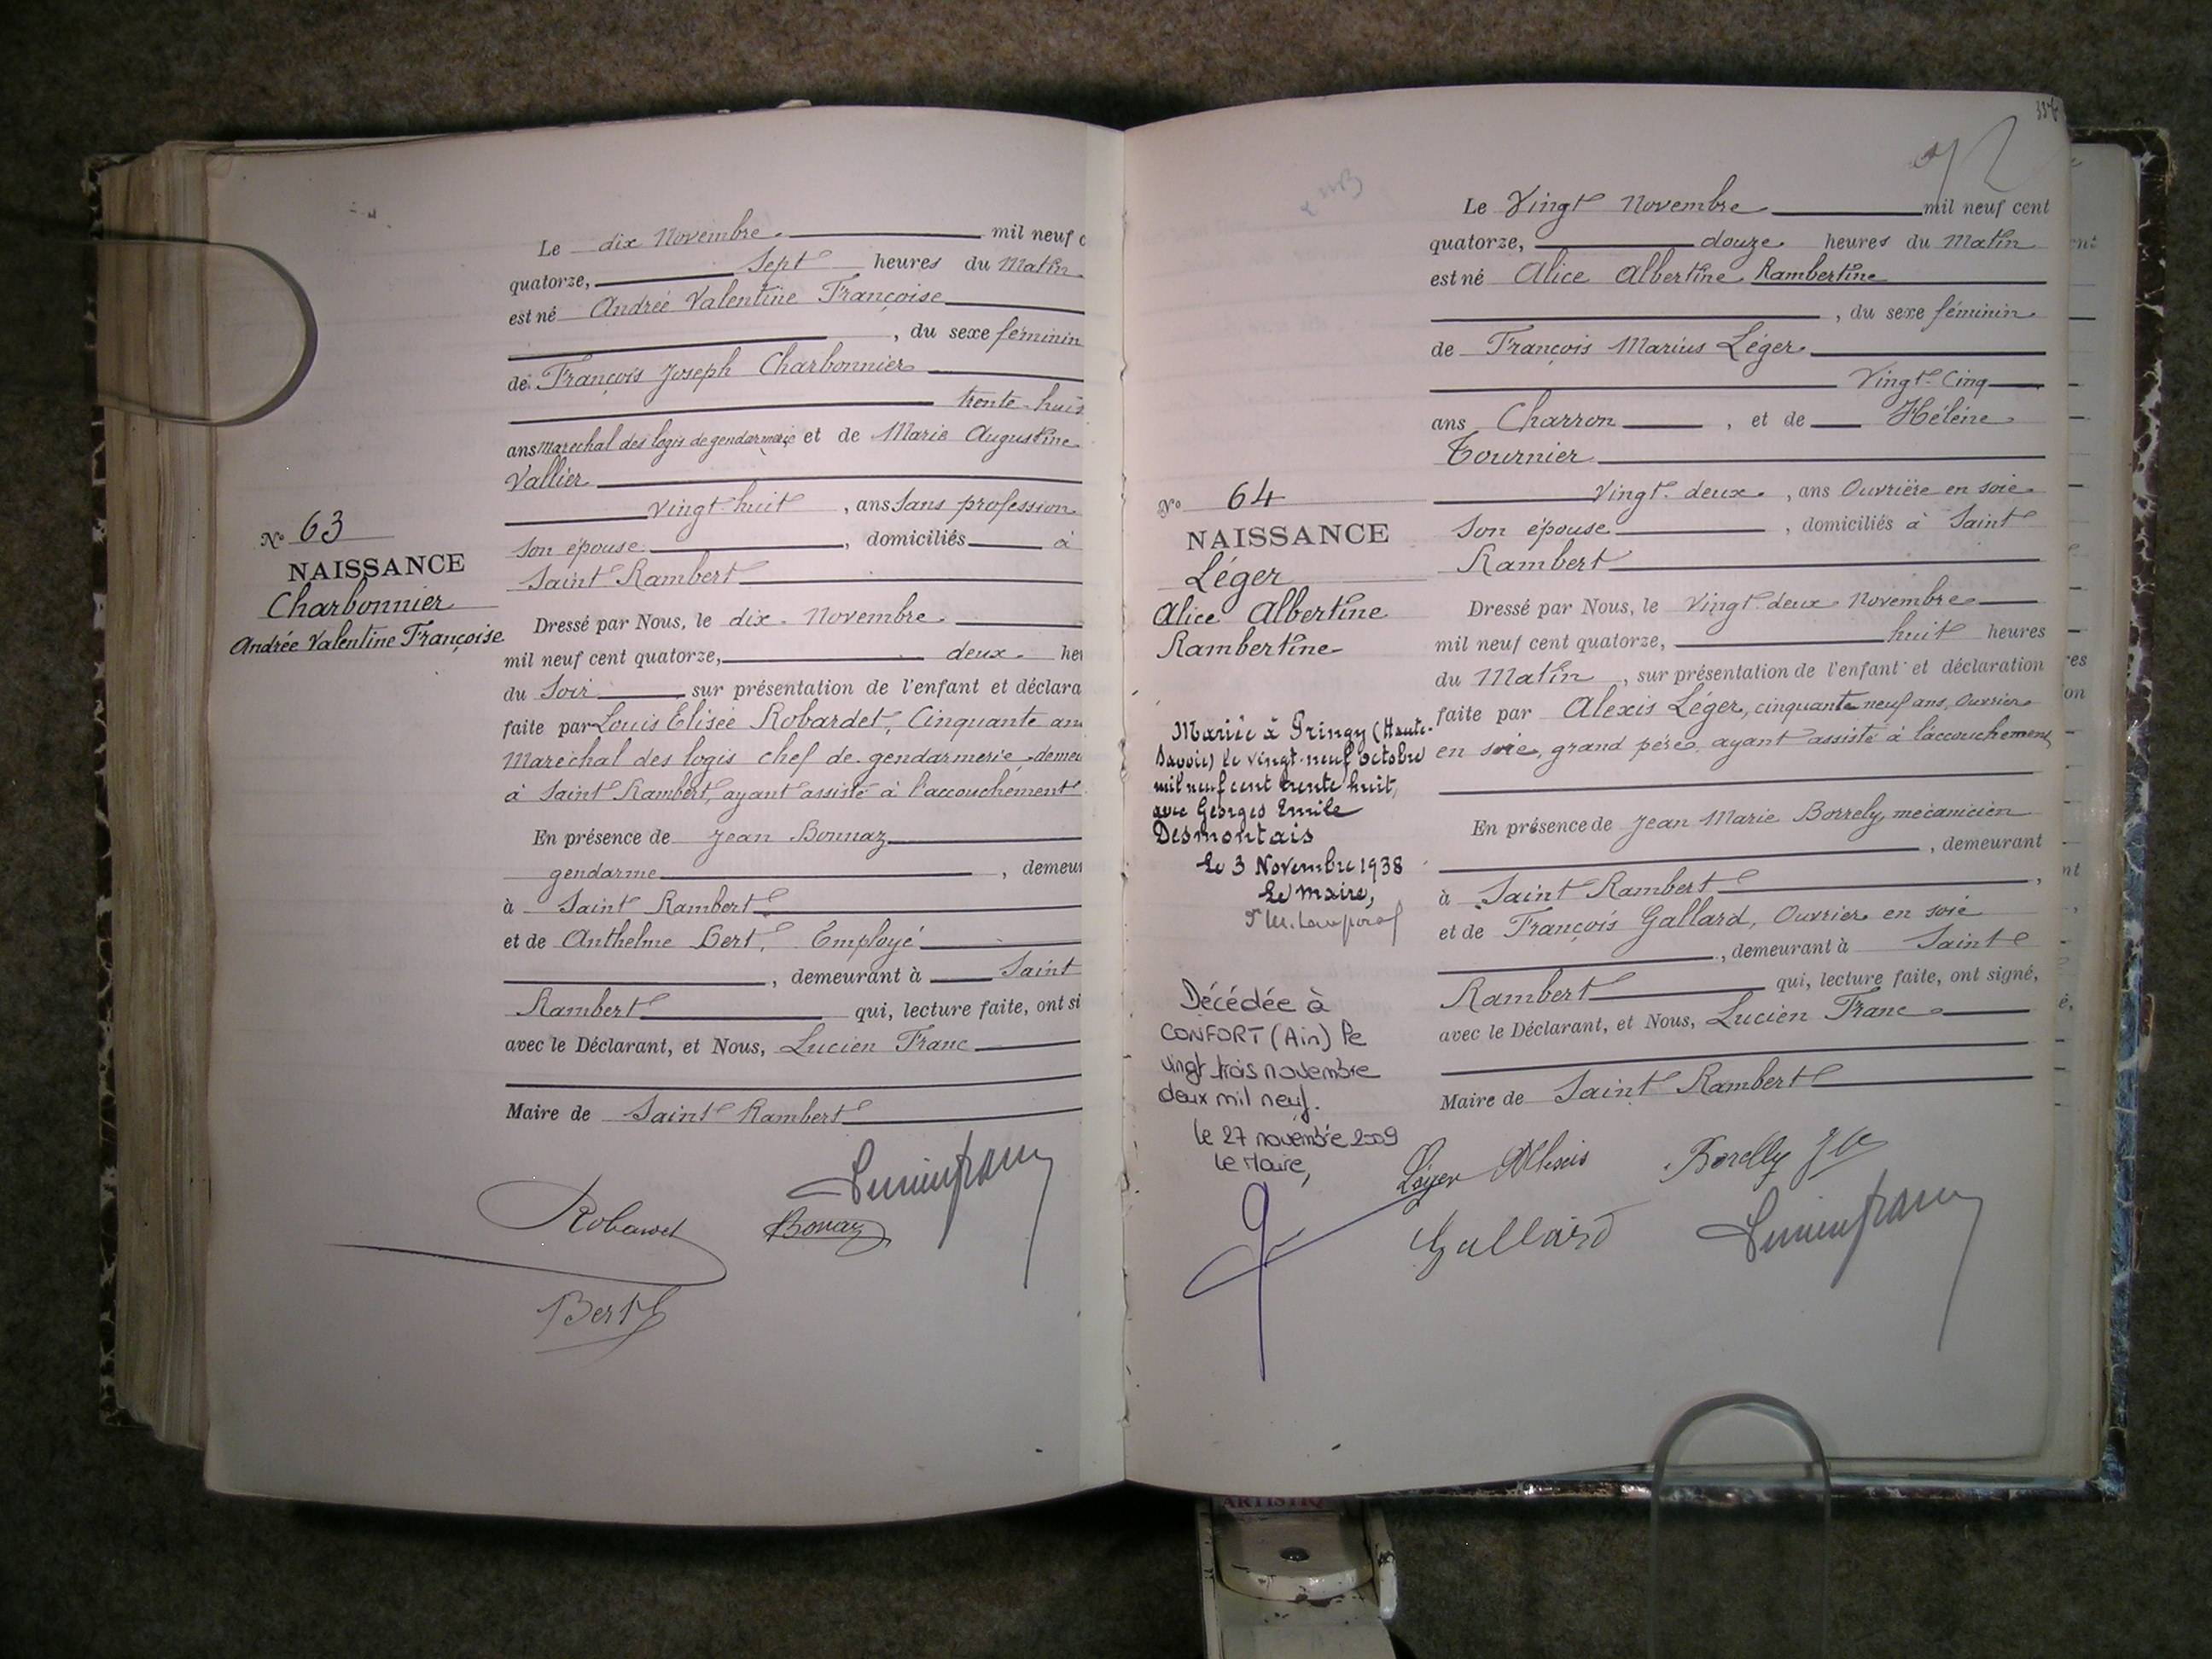 Le dix Novembre mil neuf c
quatorze, Sept heures du Matin
est né Andrée Valentine Françoise
, du sexe féminin
de François Joseph Charbonnier
trente-huit
ans Maréchal des logis de gendarmerie et de Marie Augustine
Vallier
Vingt-huit, ans Sans profession
Son épouse, domiciliés à
Saint Rambert
N° 63
NAISSANCE
Charbonnier
Andrée Valentine Françoise
Dressé par Nous, le dix Novembre
mil neuf cent quatorze, deux he
du Soir sur présentation de l'enfant et déclara
faite par Louis Elisée Robardet, Cinquante an
Maréchal des logis chef de gendarmerie, demeu
à Saint Rambert, ayant assisté à l'accouchement
En présence de Jean Bonnaz
gendarme, demeur
à Saint Rambert
et de Anthelme Bert, Employé
, demeurant à Saint
Rambert qui, lecture faite, ont si
avec le Déclarant, et Nous, Lucien Franc
Maire de Saint Rambert
Lucien franc
Robardet Bonnaz
Bert
Le Vingt Novembre mil neuf cent
quatorze, douze heures du Matin
est né Alice Albertine Rambertine
, du sexe féminin
de François Marius Léger
Vingt-Cinq
ans Charron, et de Hélène
Tournier
Vingt-deux, ans Ouvrière en soie
Son épouse, domiciliés à Saint
Rambert
N° 64
NAISSANCE
Léger
Alice Albertine
Rambertine
Mariée à Pringy (Haute-
Savoie) le vingt-neuf octobre
mil neuf cent trente huit,
avec Georges Emile
Desmontais
Le 3 Novembre 1938
Le Maire,
Décédée à
CONFORT (Ain) le
vingt trois novembre
deux mil neuf.
le 27 novembre 2009
le Maire,
Dressé par Nous, le Vingt-deux Novembre
mil neuf cent quatorze, huit heures
du Matin, sur présentation de l'enfant et déclaration
faite par Alexis Léger, cinquante neuf ans, Ouvrier
en soie, grand père, ayant assisté à l'accouchement
En présence de Jean Marie Borrely, mécanicien
, demeurant
à Saint Rambert,
et de François Gallard, Ouvrier en soie
, demeurant à Saint
Rambert qui, lecture faite, ont signé,
avec le Déclarant, et Nous, Lucien Franc
Maire de Saint Rambert
Léger Alexis Borelly
Gallard Lucien franc
ARTISTIQ